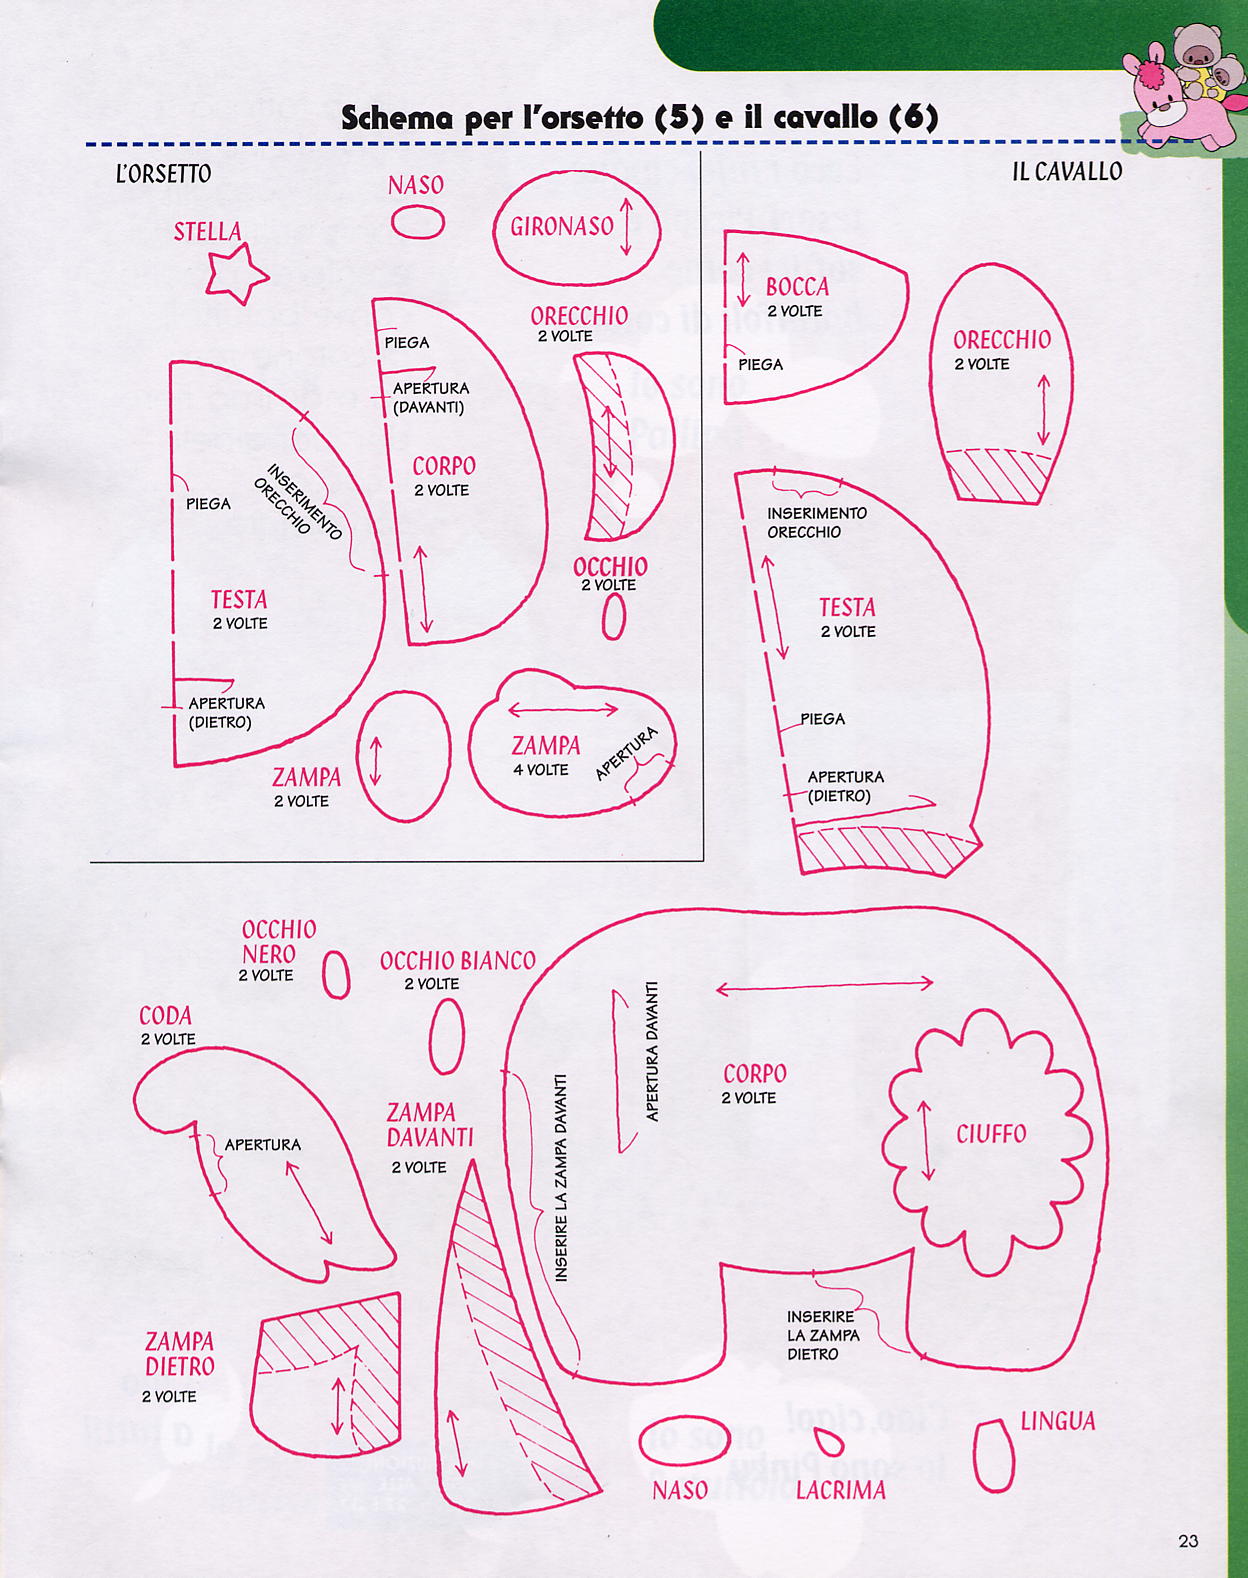 Schema per l'orsetto (5) e il cavallo (6)
L'ORSETTO
NASO
GIRONASO
STELLA
ORECCHIO
2 VOLTE
PIEGA
APERTURA
(DAVANTI)
CORPO
2 VOLTE
INSERIMENTO
ORECCHIO
PIEGA
TESTA
2 VOLTE
APERTURA
(DIETRO)
OCCHIO
2 VOLTE
ZAMPA
2 VOLTE
ZAMPA
4 VOLTE
APERTURA
IL CAVALLO
BOCCA
2 VOLTE
PIEGA
ORECCHIO
2 VOLTE
INSERIMENTO
ORECCHIO
TESTA
2 VOLTE
PIEGA
APERTURA
(DIETRO)
OCCHIO
NERO
2 VOLTE
OCCHIO BIANCO
2 VOLTE
CODA
2 VOLTE
APERTURA
ZAMPA
DAVANTI
2 VOLTE
INSERIRE LA ZAMPA DAVANTI
APERTURA DAVANTI
CORPO
2 VOLTE
CIUFFO
INSERIRE
LA ZAMPA
DIETRO
ZAMPA
DIETRO
2 VOLTE
NASO
LACRIMA
LINGUA
23